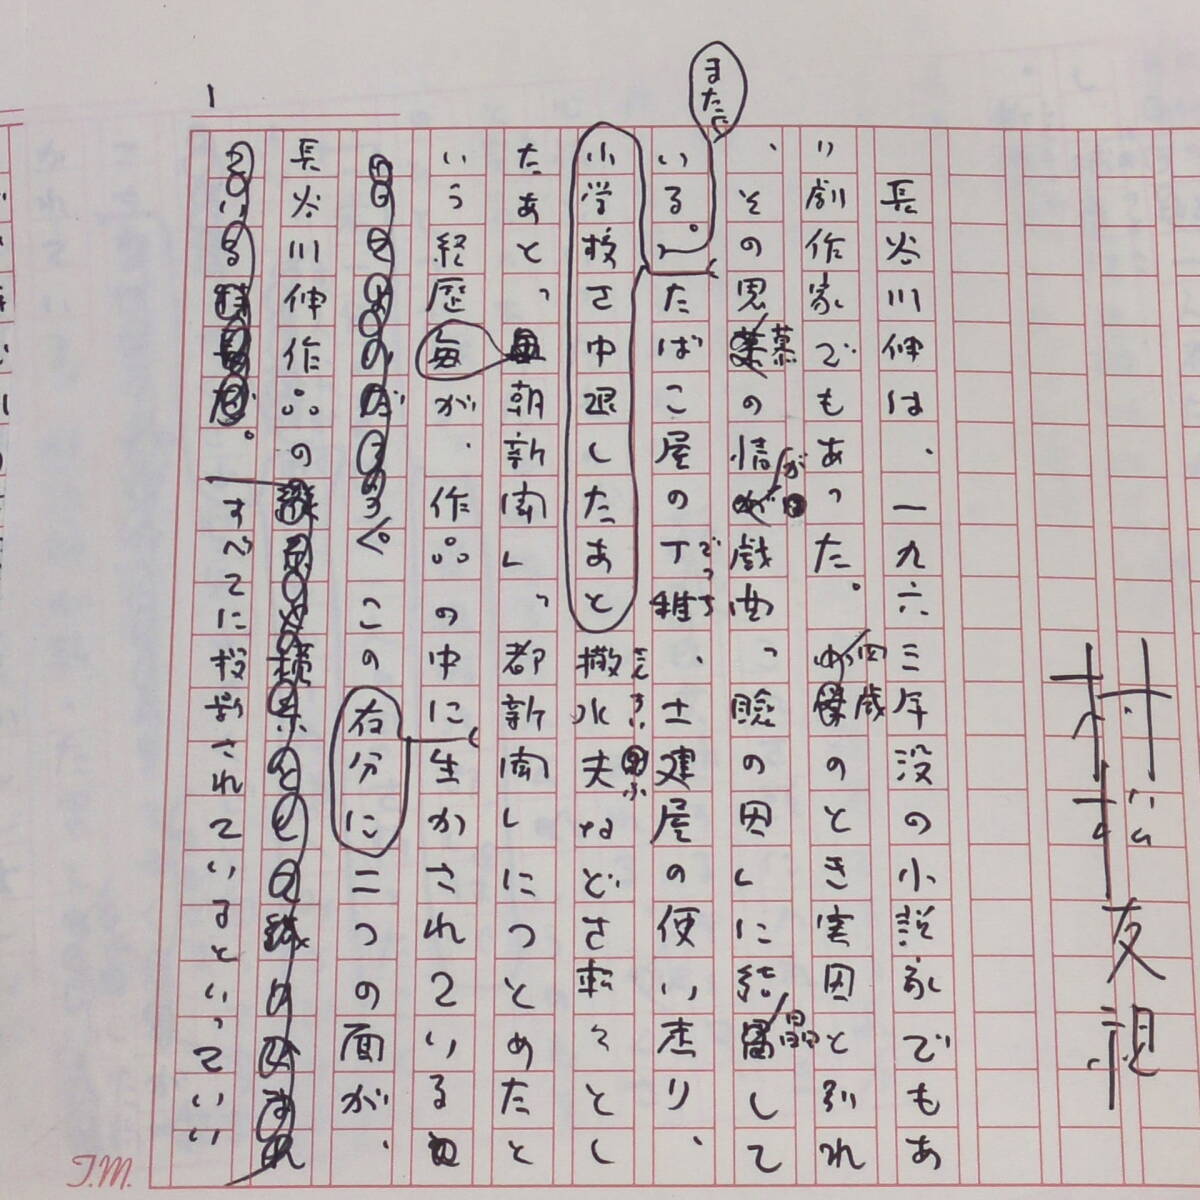 村松友視
長谷川伸は、一九六三年没の小説家でもあ
り劇作家でもあった。四歳のとき実母と別れ
、その思慕の情が戯曲「瞼の母」に結晶して
いる。また、たばこ屋の丁稚、土建屋の使い走り、
でっち
小学校を中退したあと撒水夫などを転々とし
さんすいふ
たあと、「毎朝新聞」、「都新聞」につとめたと
いう経歴が、作品の中に生かされている
この二つの面が、
存分に
長谷川伸作品の
すべてに投影されているといっていい
1
T.M.